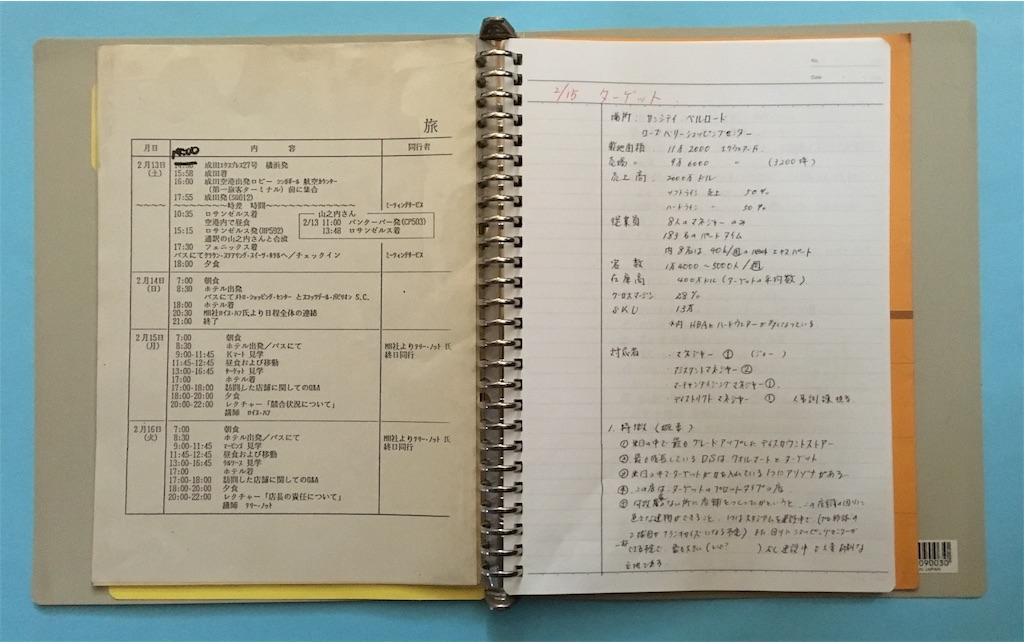 旅
月日 内容 同行者
2月13日 14:00 成田エクスプレス27号 横浜発
(土) 15:58 成田着
16:00 成田空港出発ロビー シンガポール 航空カウンター
(第一旅客ターミナル)前に集合
17:55 成田発(SQ012) ミーティングサービス
~~~~時差 時間~~~~
10:35 ロサンゼルス着
空港内で昼食
15:15 ロサンゼルス発(HP592)
通訳の山之内さんと合流
山之内さん
2/13 11:00 バンクーバー発(CP503)
13:48 ロサンゼルス着
17:30 フェニックス着
バスにて ホテルへ/チェックイン ミーティングサービス
18:00 夕食
2月14日 7:00 朝食
(日) 8:30 ホテル出発
バスにてメトロ・ショッピング・センター とスコッツデール・パビリオン S.C.
18:00 ホテル着
20:30 氏より日程全体の連絡
21:00 終了
2月15日 7:00 朝食 MH社よりテリー・ノット 氏
(月) 8:30 ホテル出発/バスにて 終日同行
9:00-11:45 Kマート 見学
11:45-12:45 昼食および移動
13:00-16:45 ターゲット 見学
17:00 ホテル着
17:00-18:00 訪問した店舗に関してのQ&A
18:00-20:00 夕食
20:00-22:00 レクチャー「競合状況について」
講師 ロイス・ハフ
2月16日 7:00 朝食 MH社よりテリー・ノット 氏
(火) 8:30 ホテル出発/バスにて 終日同行
9:00-11:45 マービンズ 見学
11:45-12:45 昼食および移動
13:00-16:45 見学
17:00 ホテル着
17:00-18:00 訪問した店舗に関してのQ&A
18:00-20:00 夕食
20:00-22:00 レクチャー「店長の責任について」
講師 テリー・ノット
No.
Date
2/15 ターゲット
場所: サンシティ ベルロード
ローズベリーショッピングセンター
敷地面積: 11万2000 スクウェアフィート
売場 〃 9万6000 〃 (3200坪)
売上高: 2000万ドル
ソフトライン 売上 50%
ハードライン 〃 50%
従業員 8人のマネジャーのみ
183名のパートタイム
内8名は 40h/週の エキスパート
客数 1日4000~5000人/週
在庫高 400万ドル(ターゲットの平均数)
グロスマージン 28%
SKU 13万
※内 HBAとハードウェアーが多くなっている
対応者 ・マネジャー ① (ジョー)
・アシスタントマネジャー ②
・マーチャンダイジングマネジャー ①
・ディストリクトマネジャー ① 人事訓練担当
1. 特徴(概要)
① 米国の中で最もグレードアップしたディスカウントストアー
② 最も成長しているDSはウォルマートとターゲット
③ 米国の中でターゲットが力を入れている1つにアリゾナがある
④ この店はターゲットのプロトタイプの店
⑤ 何故 ない所に店舗をつくったかというと、この店舗の回りに
色々な建物ができること、1つはスタジアムを建設中で
2 予定) また回りにショッピングセンターが
予定で 最も大きい 建設中
立地である
090030
JAPAN